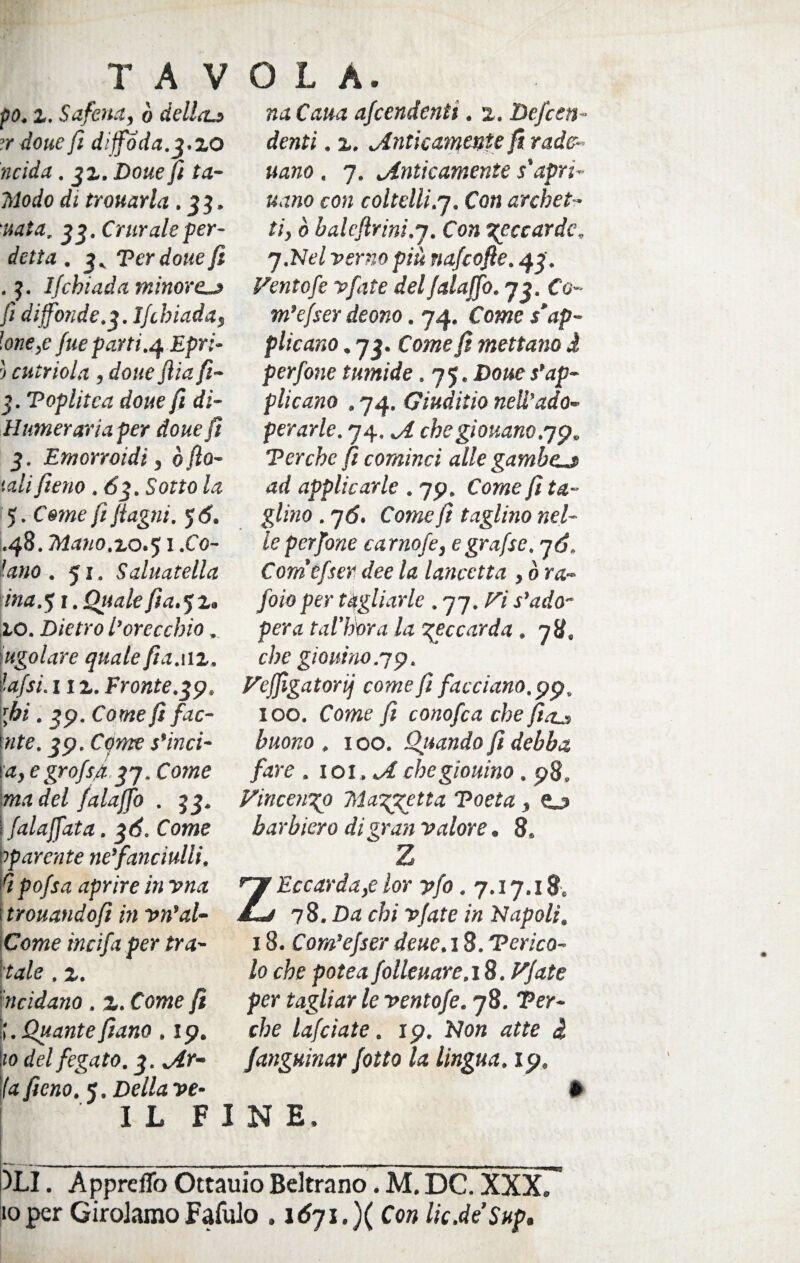 TAVOLA.
po. 2. Safena, ò della
er doue si diffoda. 3. 20
ncida. 32. Doue si ta-
Modo di trouarla. 33.
uata. 33. Crurale per-
detta. 3. Per doue si
. 3. Ischiada minore
si diffonde. 3. Ischiada,
ione, e sue parti. 4 Epri-
ò cutriola, doue stia si-
3. Poplitea doue si di-
Humeraria per doue si
3. Emorroidi, ò flo-
tali sieno. 63. Sotto la
5. Come si stagni. 56.
.48. Mano. 20. 51. Co-
ano. 51. Saluatella
ina. 51. Quale sia. 52.
20. Dietro l'orecchio.
ugolare quale sia. 112.
lassi. 112. Fronte. 39.
hi. 39. Come si fac-
nte. 39. Come s'inci-
a, e grossa 37. Come
ma del salasso. 33.
salassata. 36. Come
pparente ne' fanciulli.
si possa aprire in vna
trouandosi in vn'al-
Come incisa per tra-
tale. 2.
ncidano. 2. Come si
. Quante siano. 19.
io del fegato. 3. Ar-
la sieno. 5. Della ve-
na Caua ascendenti. 2. Descen-
denti. 2. Anticamente si rade-
uano. 7. Anticamente s'apri-
uano con coltelli. 7. Con archet-
ti, ò balestrini. 7. Con zeccarde.
7. Nel verno più nascoste. 43.
Ventose vsate del salasso. 73. Co-
m'esser deono. 74. Come s'ap-
plicano. 73. Come si mettano à
persone tumide. 75. Doue s'ap-
plicano. 74. Giuditio nell'ado-
perarle. 74. A che giouano. 79.
Perche si cominci alle gambe
ad applicarle. 79. Come si ta-
glino. 76. Come si taglino nel-
le persone carnose, e grasse. 76.
Com'esser dee la lancetta, ò ra-
soio per tagliarle. 77. Vi s'ado-
pera tal'hora la zeccarda. 78.
che giouino. 79.
Vessigatorij come si facciano. 99.
100. Come si conosca che sia
buono. 100. Quando si debba
fare. 101. A che giouino. 98.
Vincenzo Mazzetta Poeta, e
barbiero di gran valore. 8.
Z
Zeccarda, e lor vso. 7. 17. 18.
78. Da chi vsate in Napoli.
18. Com'esser deue. 18. Perico-
lo che potea solleuare. 18. Vsate
per tagliar le ventose. 78. Per-
che lasciate. 19. Non atte à
sanguinar sotto la lingua. 19.
IL FINE.
OLI. Appresso Ottauio Beltrano. M. DC. XXX.
io per Girolamo Fasulo. 1671. )( Con lic. de' Sup.